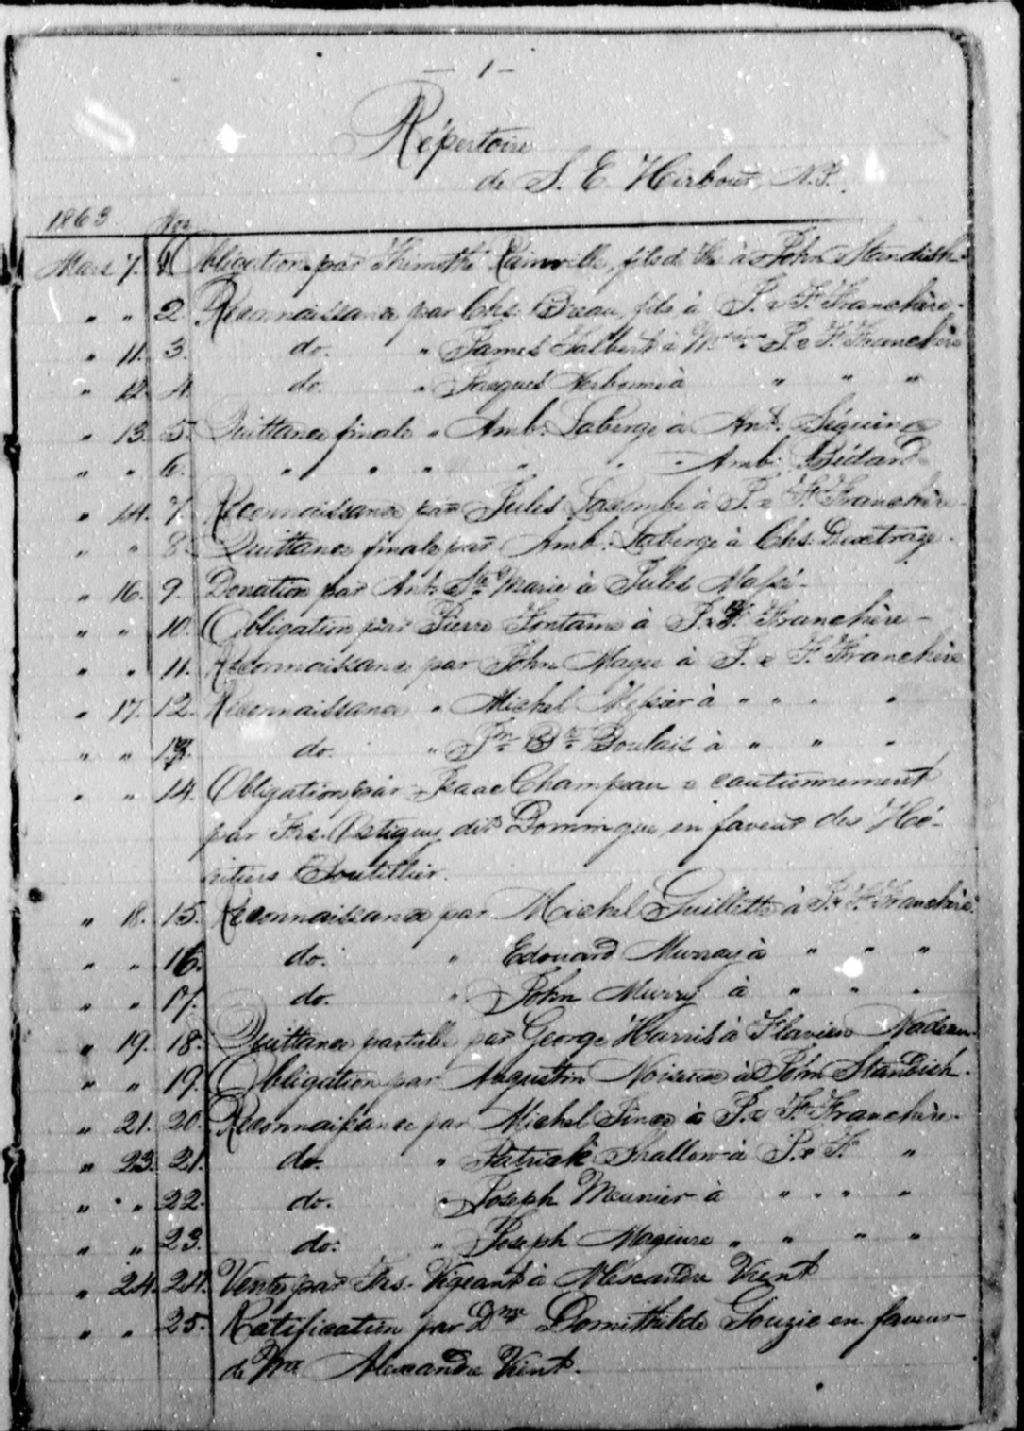 — 1 —
Répertoire
de S. E. Hirbour, N.P.
1863 Nos
Mars 7. 1. Obligation par Thimothé Rainville, fils de à John Standish
" " 2. Reconnaissance par Chs. fils à P. & F. Franchère.
" 11. 3. do. " James Talbert à P. & F. Franchère
" 12. 4. do. " Jacques à " " "
" 13. 5. Quittance finale " Amb. Laberge à Ant. Séguin
" " 6. " " " " " " Amb. Bédard
" 14. 7. Reconnaissance par Jules Lacombe à P. & F. Franchère
" " 8. Quittance finale par Amb. Laberge à Chs.
" 16. 9. Donation par Ant. Ste Marie à Jules
" " 10. Obligation par Pierre Fontaine à P. & F. Franchère —
" " 11. Reconnaissance par John Magee à P. & F. Franchère
" 17. 12. Reconnaissance " Michel à " " " "
" " 13. do. " Jn Bte Boulais à " " "
" " 14. Obligation par Isaac Champeau & cautionnement
par Frs. dit Dominque en faveur des Hé-
ritiers Boutillier.
" 18. 15. Reconnaissance par Michel Guillette à P. & F. Franchère.
" " 16. do. " Edouard Murray à " " "
" " 17. do. " John Murry à " " "
" 19. 18. Quittance partielle par George Harris à Flavien Nadeau
" " 19. Obligation par Augustin Noiseux à John Standish.
" 21. 20. Reconnaissance par Michel à P. & F. Franchère.
" 23. 21. do. " Patrick Shallow à P. & F. "
" " 22. do. " Joseph Meunier à " " " "
" " 23. do. " Joseph " " " "
" 24. 24. Vente par Frs. Vigeant à Alexandre Vient
" " 25. Ratification par Dme Domithilde en faveur
de Alexandre Vient.